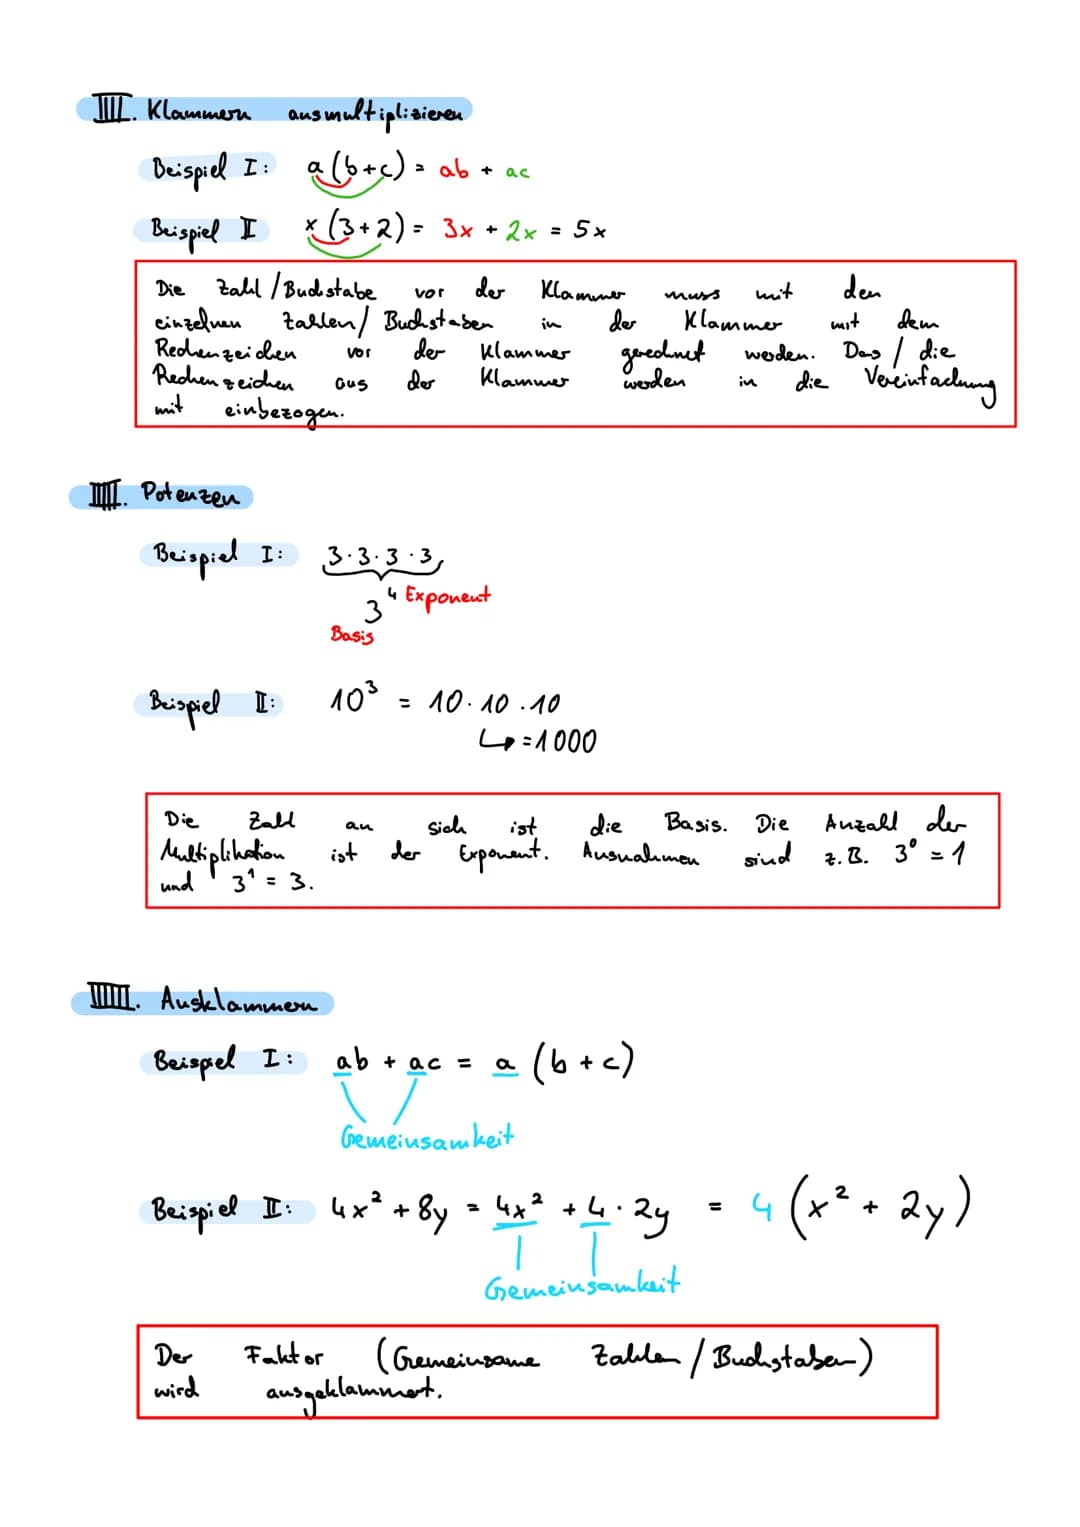 IIII. Klammern ausmultiplizieren
Beispiel I: a (b+c) = ab + ac
Beispiel II x (3+2) = 3x + 2x = 5x
Die Zahl / Buchstabe vor der Klammer muss mit den
einzelnen Zahlen / Buchstaben in der Klammer mit dem
Rechenzeichen vor der Klammer gerechnet werden. Das / die
Rechenzeichen aus der Klammer werden in die Vereinfachung
mit einbezogen.
IIIII. Potenzen
Beispiel I: 3·3·3·3
3⁴ Exponent
Basis
Beispiel II: 10³ = 10·10·10
↳ =1000
Die Zahl an sich ist die Basis. Die Anzahl der
Multiplikation ist der Exponent. Ausnahmen sind z.B. 3⁰ = 1
und 3¹ = 3.
IIIIII. Ausklammern
Beispiel I: ab + ac = a (b+c)
Gemeinsamkeit
Beispiel II: 4x² + 8y = 4x² + 4·2y = 4 (x² + 2y)
Gemeinsamkeit
Der Faktor (Gemeinsame Zahlen / Buchstaben)
wird ausgeklammert.